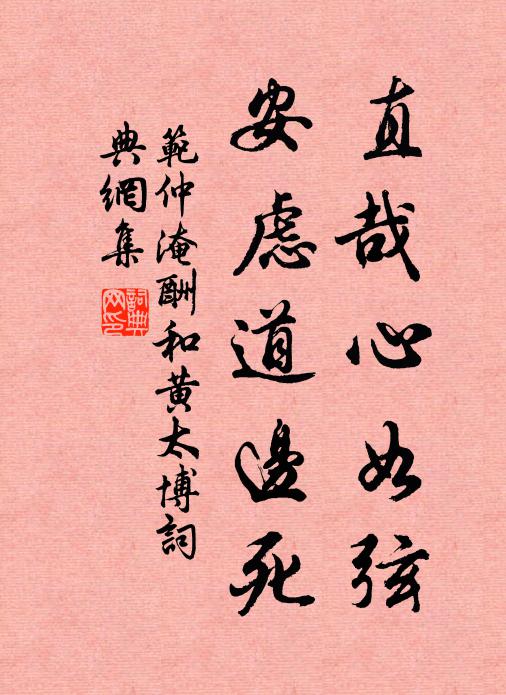 直哉心如弦
安慮道邊死
範仲淹酬和黃太博詞
典網集
詞典网印